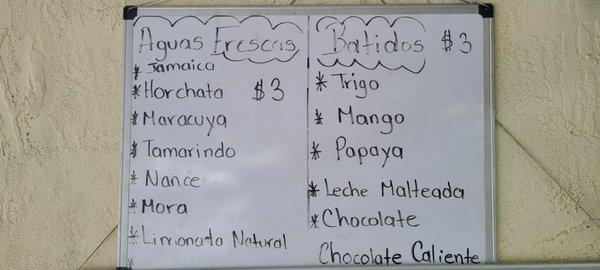 Aguas Frescas
* Jamaica
* Horchata $3
* Maracuya
* Tamarindo
* Nance
* Mora
* Limonada Natural
*
Batidos $3
* Trigo
* Mango
* Papaya
* Leche Malteada
* Chocolate
Chocolate Caliente